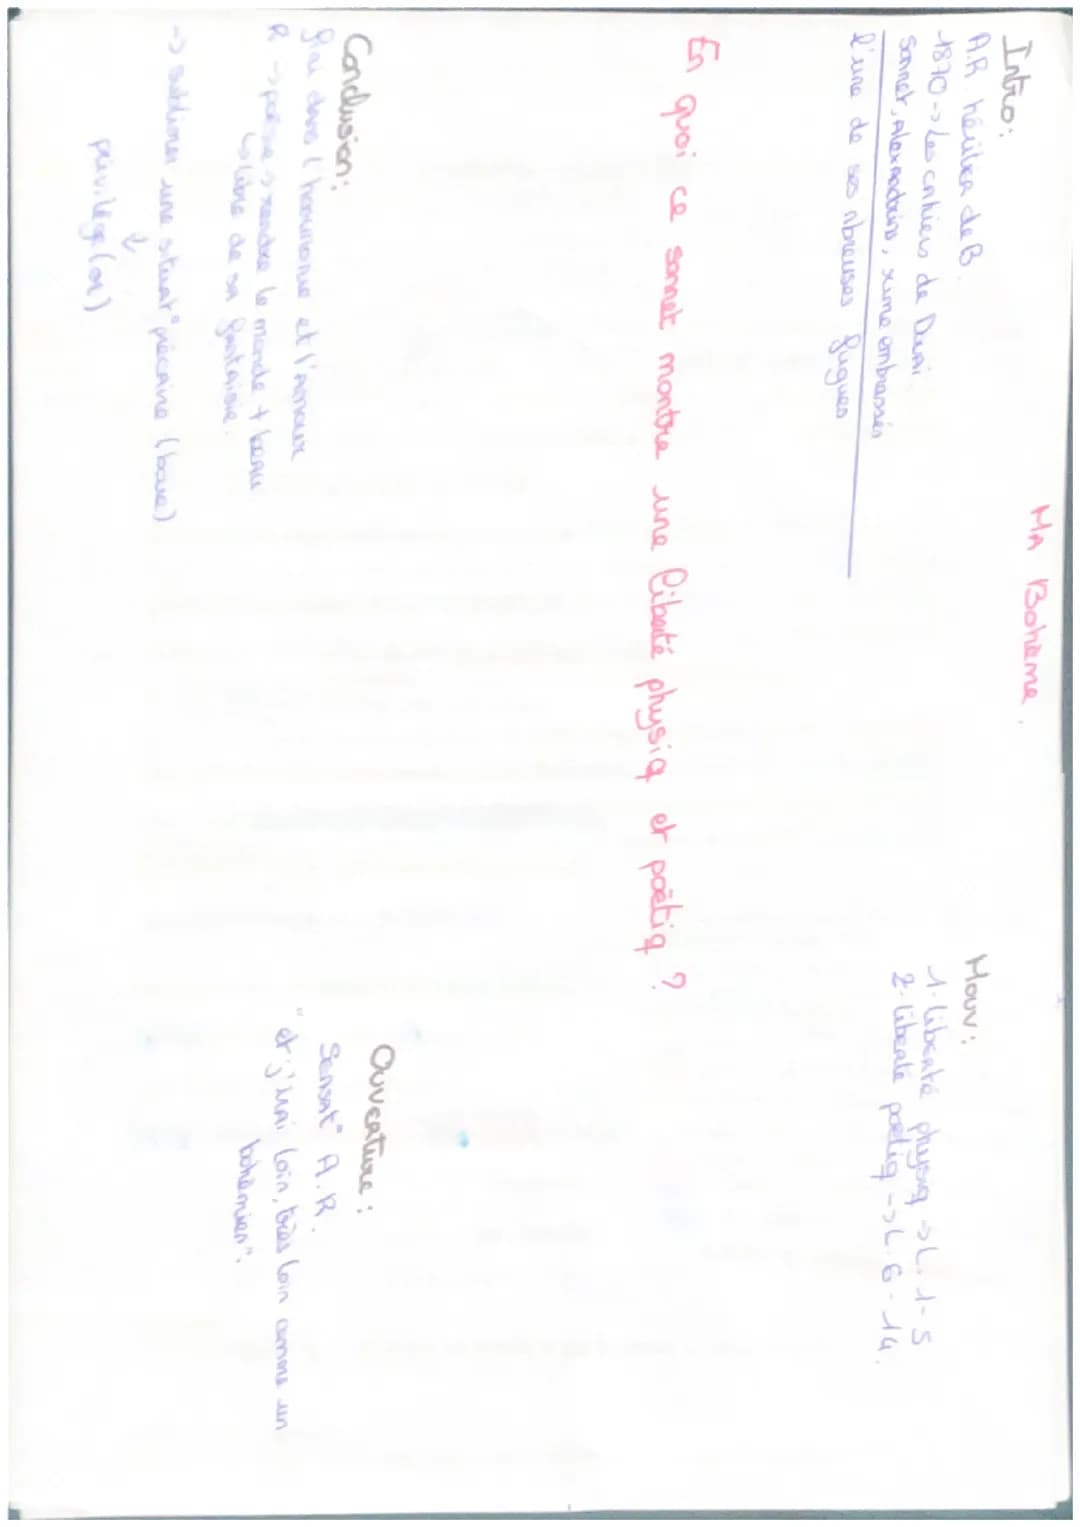 MA Bohème.
Intro:
A.R. héritier de B.
1870 -> Les cahiers de Douai
Sonnet, Alexandrins, rime embrassés
l'une de ses nbreuses fugues
Mouv:
1. liberté physiq -> L. 1-5
2. liberté poétiq -> L. 6-14.
En quoi ce sonnet montre une liberté physiq et poétiq ?
Conclusion:
foi dans l'harmonie et l'amour
R -> poésie -> rendre le monde + beau
↳ libre de sa fantaisie.
-> sublimer une situat° précaire (boue)
↓
privilège (or)
Ouverture:
Sensat° A.R.
"et j'irai loin, très loin comme un
bohémien".